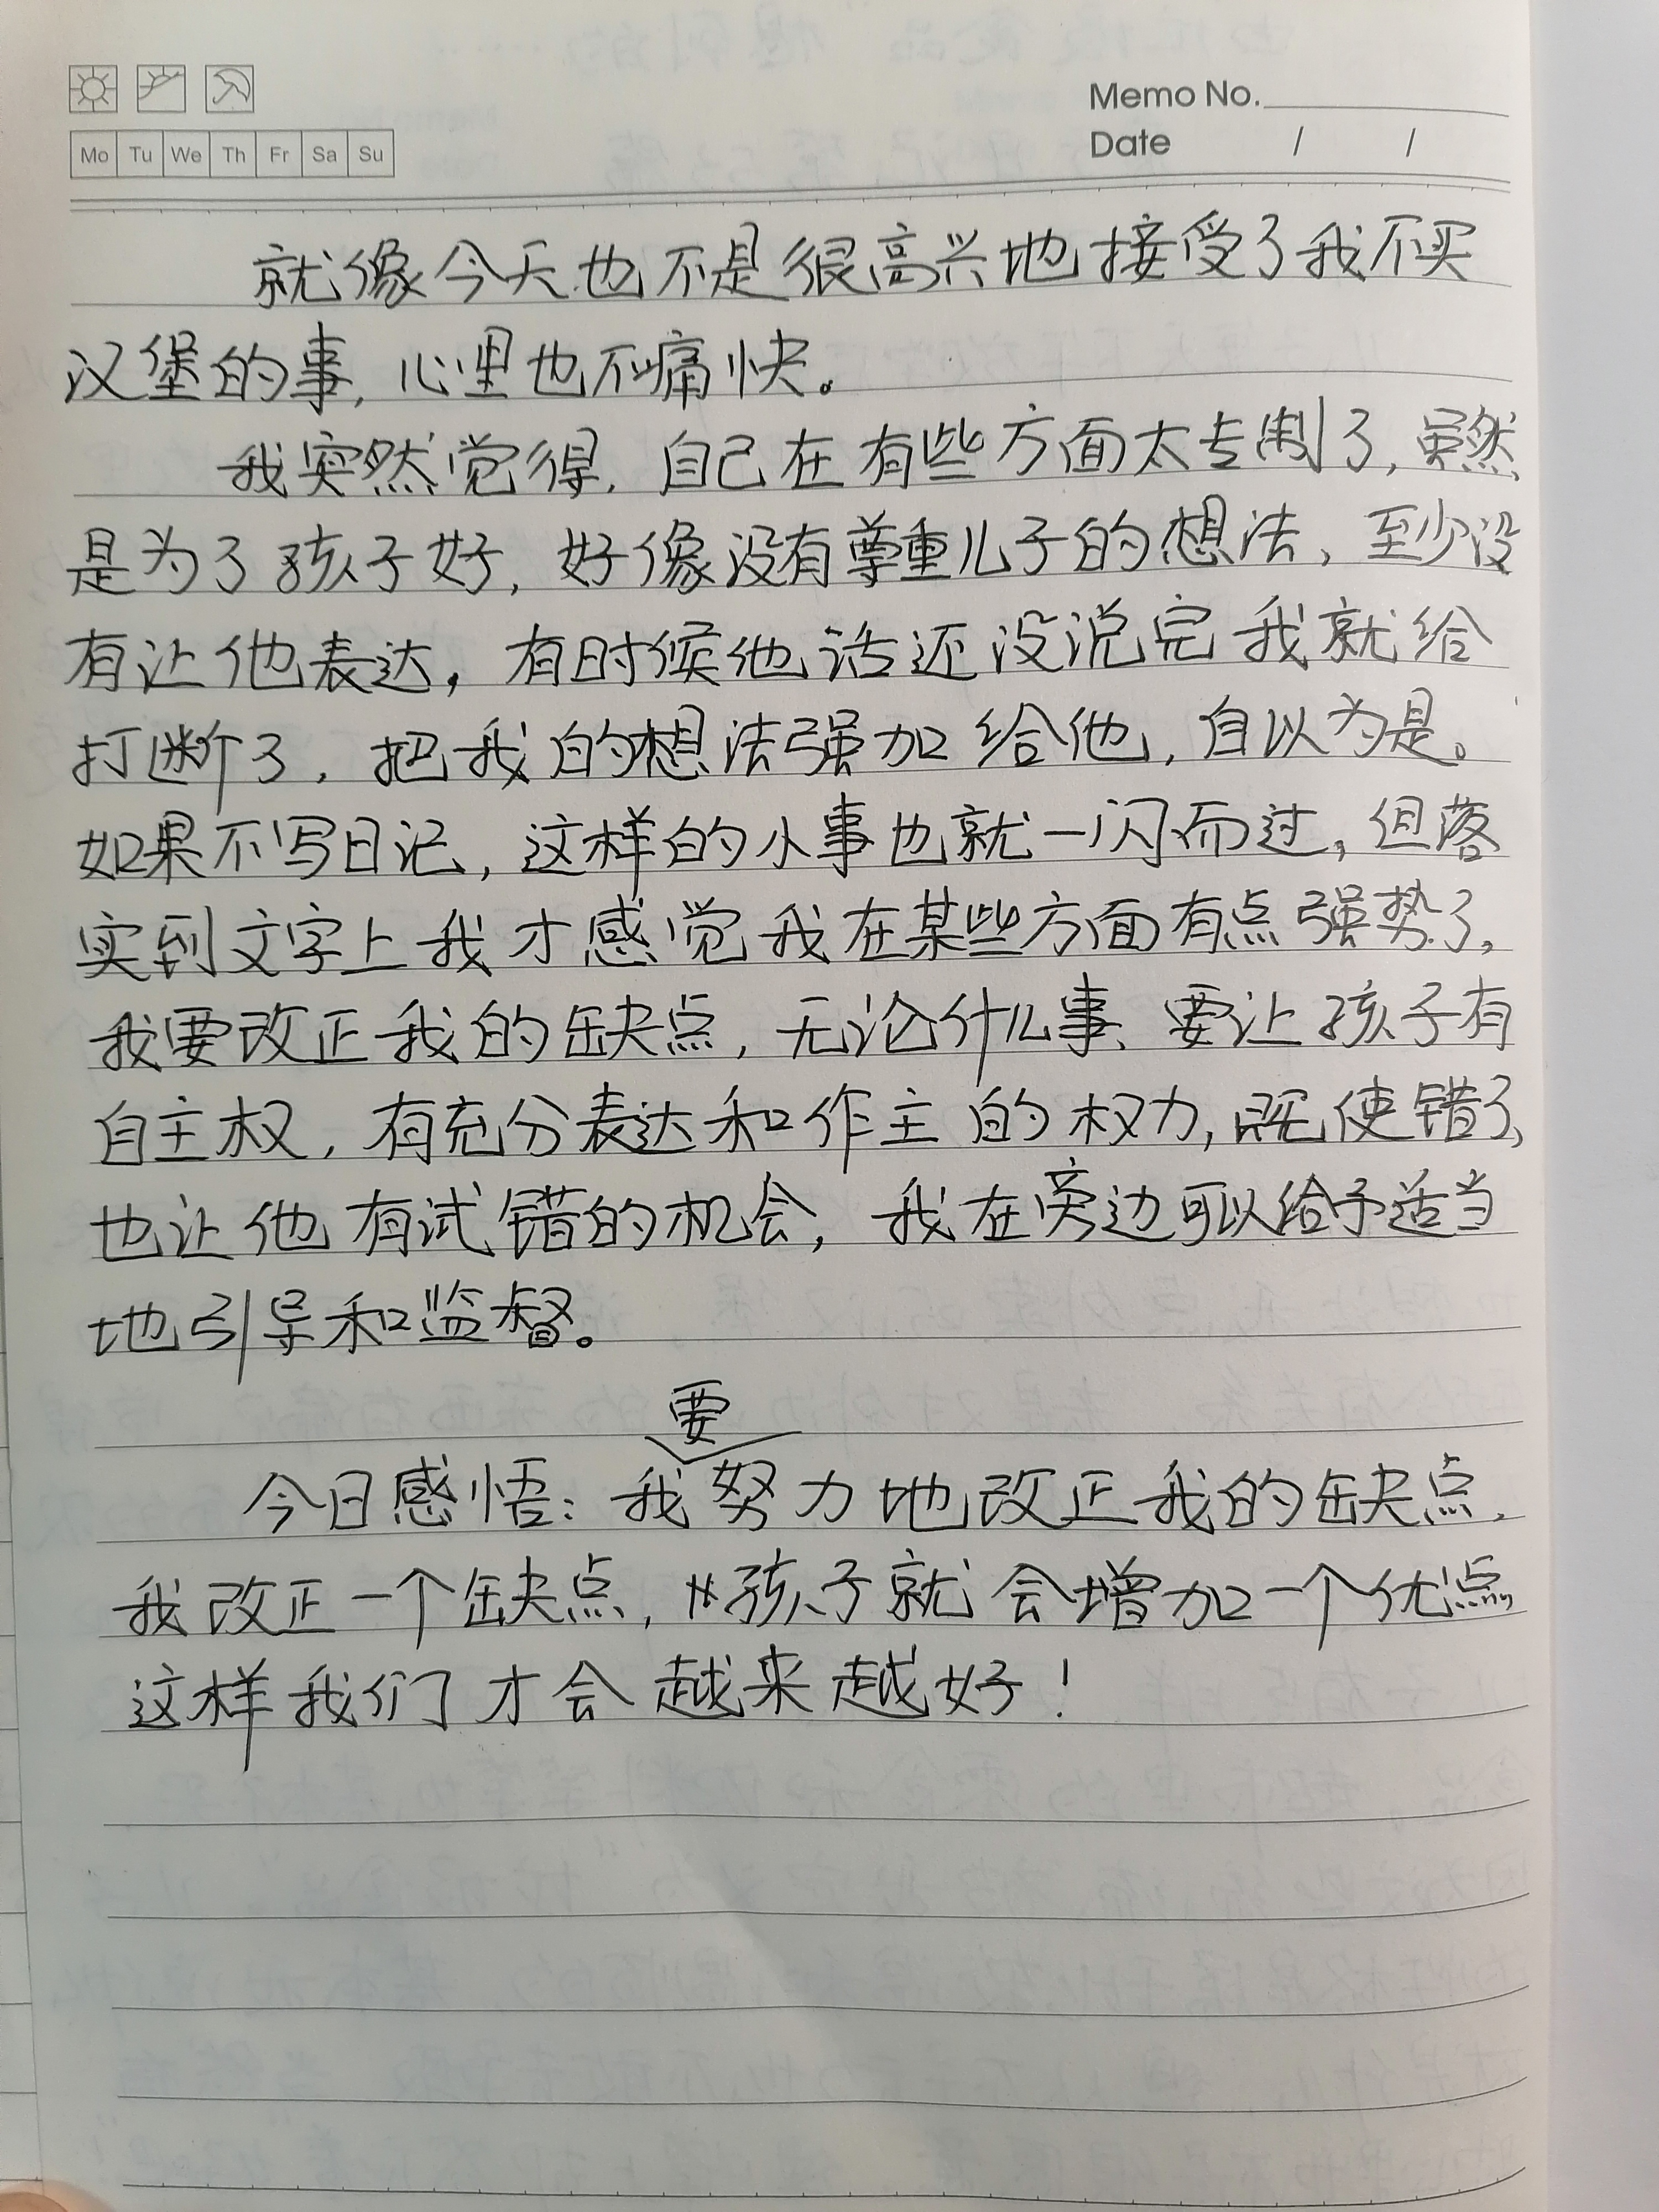 Memo No.
Mo Tu We Th Fr Sa Su
Date / /
就像今天也不是很高兴地接受了我不买
汉堡的事,心里也不痛快。
我突然觉得,自己在有些方面太专制了,虽然
是为了孩子好,好像没有尊重儿子的想法,至少没
有让他表达,有时候他话还没说完我就给
打断了,把我的想法强加给他,自以为是。
如果不写日记,这样的小事也就一闪而过,但落
实到文字上我才感觉我在某些方面有点强势了,
我要改正我的缺点,无论什么事、要让孩子有
自主权,有充分表达和作主的权力,既使错了,
也让他有试错的机会,我在旁边可以给予适当
地引导和监督。
要
今日感悟:我努力地改正我的缺点,
我改正一个缺点,孩子就会增加一个优点
这样我们才会越来越好!